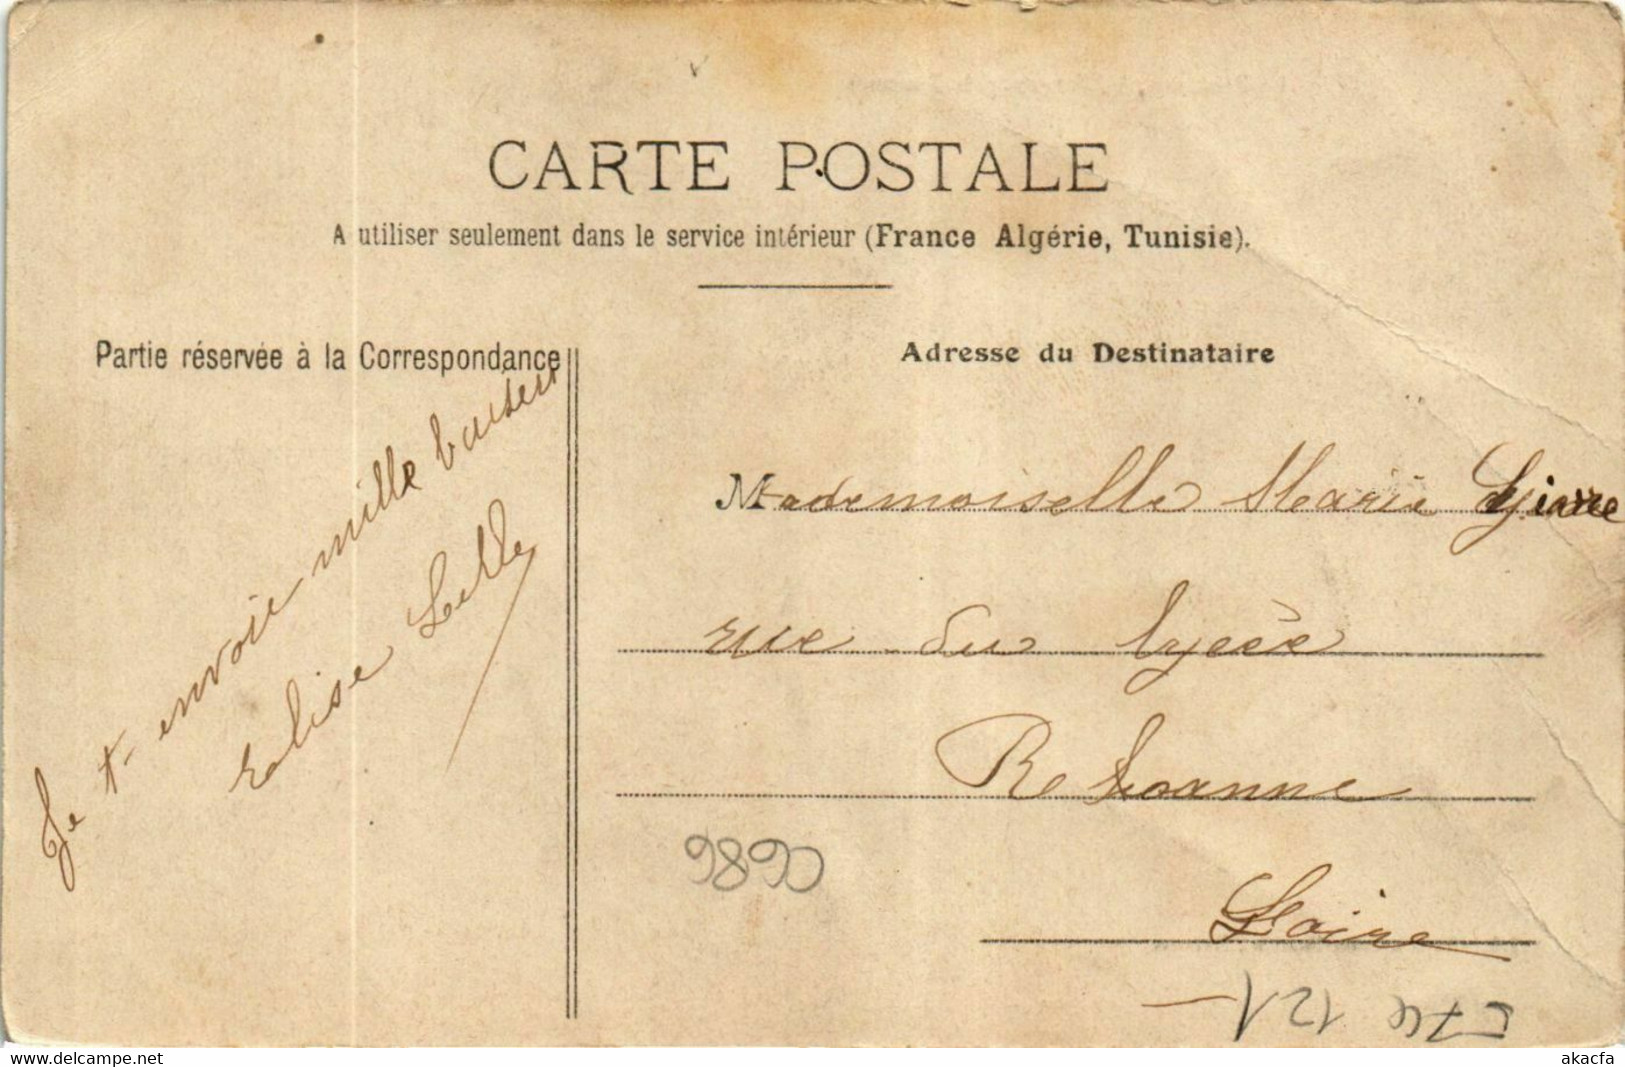 CARTE POSTALE
A utiliser seulement dans le service intérieur (France Algérie, Tunisie).
Partie réservée à la Correspondance
Adresse du Destinataire
Je t'envoie mille baisers
Elise
Mademoiselle Marie
rue du lycée
Roanne
Loire
121
akacfa
https://www.delcampe.net